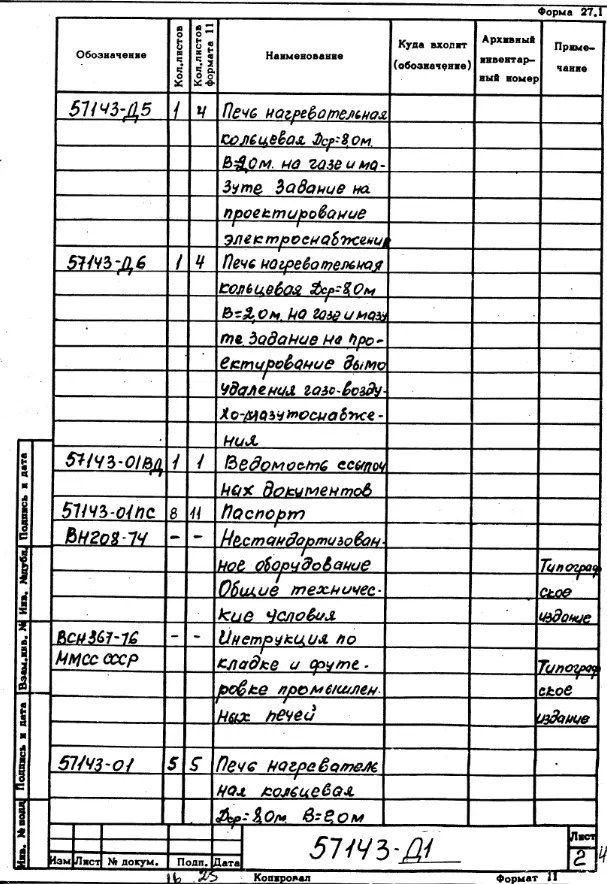 Форма 27.1
Обозначение Кол.листов Кол.листов формата 11 Наименование Куда входит (обозначение) Архивный инвентар- ный номер Приме- чание
57143-Д5 1 4 Печь нагревательная
кольцевая Дср=8,0м.
В=2,0м. на газе и ма-
зуте Задание на
проектирование
электроснабжения
57143-Д6 1 4 Печь нагревательная
кольцевая Дср=8,0м
В=2,0м. на газе и мазу
те Задание на про-
ектирование дымо
удаления газо-возду-
хо-мазутоснабже-
ния
57143-01ВД 1 1 Ведомость ссылоч
ных документов
57143-01ПС 8 11 Паспорт
ВН208-74 - - Нестандартизован-
ное оборудование Типограф
Общие техничес- ское
кие условия издание
ВСН367-76 - - Инструкция по
ММСС СССР кладке и футе- Типограф
ровке промышлен ское
ных печей издание
57143-01 5 5 Печь нагреватель
ная кольцевая
Дср=8,0м В=2,0м
Подпись и дата
Инв. №дубл.
Взам.инв. №
Подпись и дата
Инв. № подл
57143-Д1
Лист
2 4
Изм Лист № докум. Подп. Дата
16 25 Копировал Формат 11